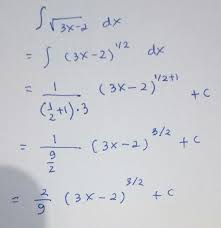 ∫ √(3x-2) dx
= ∫ (3x-2)^(1/2) dx
= 1/((1/2+1)·3) (3x-2)^(1/2+1) + c
= 1/(9/2) · (3x-2)^(3/2) + c
= 2/9 (3x-2)^(3/2) + c